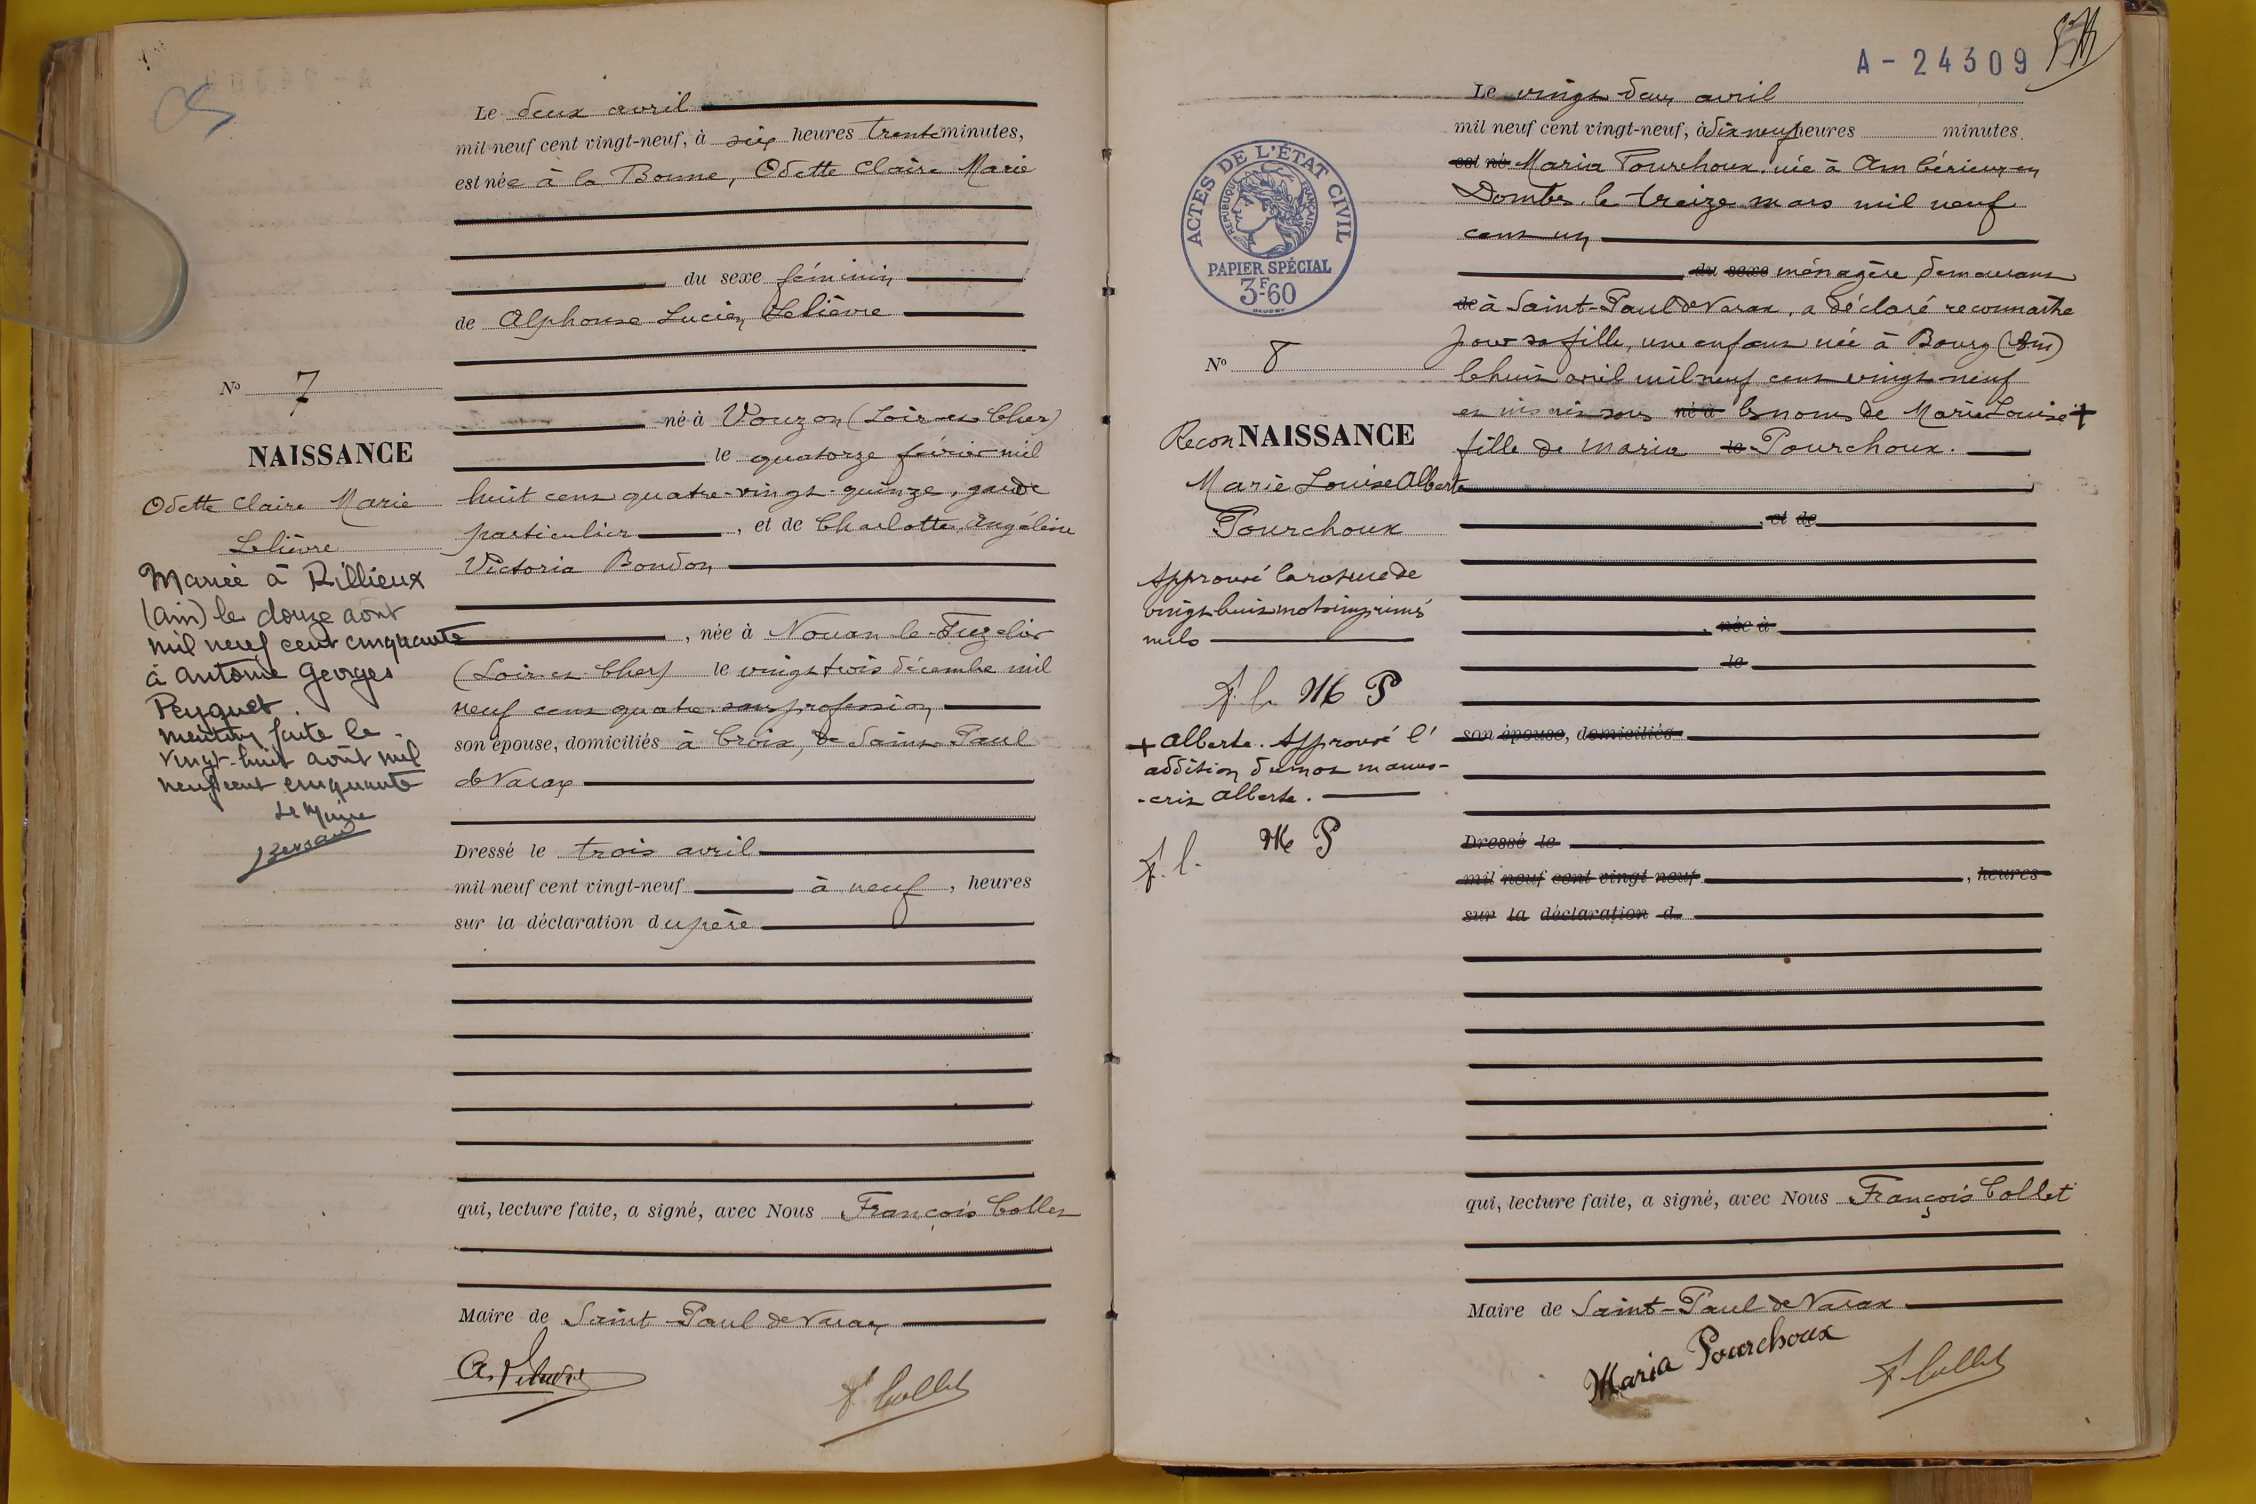 Le deux avril
mil neuf cent vingt-neuf, à six heures trente minutes,
est née à la Bonne, Odette Claire Marie
du sexe féminin
de Alphonse Lucien Lelièvre
N° 7
né à Vouzon (Loir et Cher)
NAISSANCE
le quatorze février mil
Odette Claire Marie
Lelièvre
huit cent quatre-vingt-quinze, garde
particulier, et de Charlotte Angéline
Victoria Boudon
Mariée à Rillieux
(Ain) le douze août
mil neuf cent cinquante
à Antoine Georges
Peyquet.
mention faite le
vingt-huit août mil
neuf cent cinquante
Le Maire
, née à Nouan-le-Fuzelier
(Loir et Cher) le vingt trois décembre mil
neuf cent quatre sans profession
son épouse, domiciliés à Croix, de Saint Paul
de Varax
Dressé le trois avril
mil neuf cent vingt-neuf à neuf, heures
sur la déclaration du père
qui, lecture faite, a signé, avec Nous François Collet
Maire de Saint Paul de Varax
F. Collet
A-24309
Le vingt deux avril
mil neuf cent vingt-neuf, à dix neuf heures minutes
est né Maria Pourchoux née à Ambérieux en
Dombes le treize mars mil neuf
cent un
du sexe ménagère, demeurant
de à Saint-Paul de Varax, a déclaré reconnaître
pour sa fille, une enfant née à Bourg (Ain)
le huit avril mil neuf cent vingt neuf
et inscrite sous né à les noms de Marie Louise +
fille de Maria le Pourchoux.
et de
née à
le
son épouse, domiciliés
Dressé le
mil neuf cent vingt-neuf, heures
sur la déclaration d
ACTES DE L'ÉTAT CIVIL
RÉPUBLIQUE FRANÇAISE
PAPIER SPÉCIAL
3F.60
N° 8
Recon NAISSANCE
Marie Louise Alberte
Pourchoux
Approuvé la rature de
vingt huit mots imprimés
nuls
F. C. M P
+ Alberte. Approuvé l'
addition du mot manus-
-crit Alberte.
M P
F. C.
qui, lecture faite, a signé, avec Nous François Collet
Maire de Saint-Paul de Varax
Maria Pourchoux
F. Collet